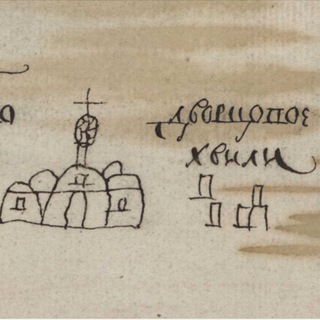 о
дворцопос
хвили